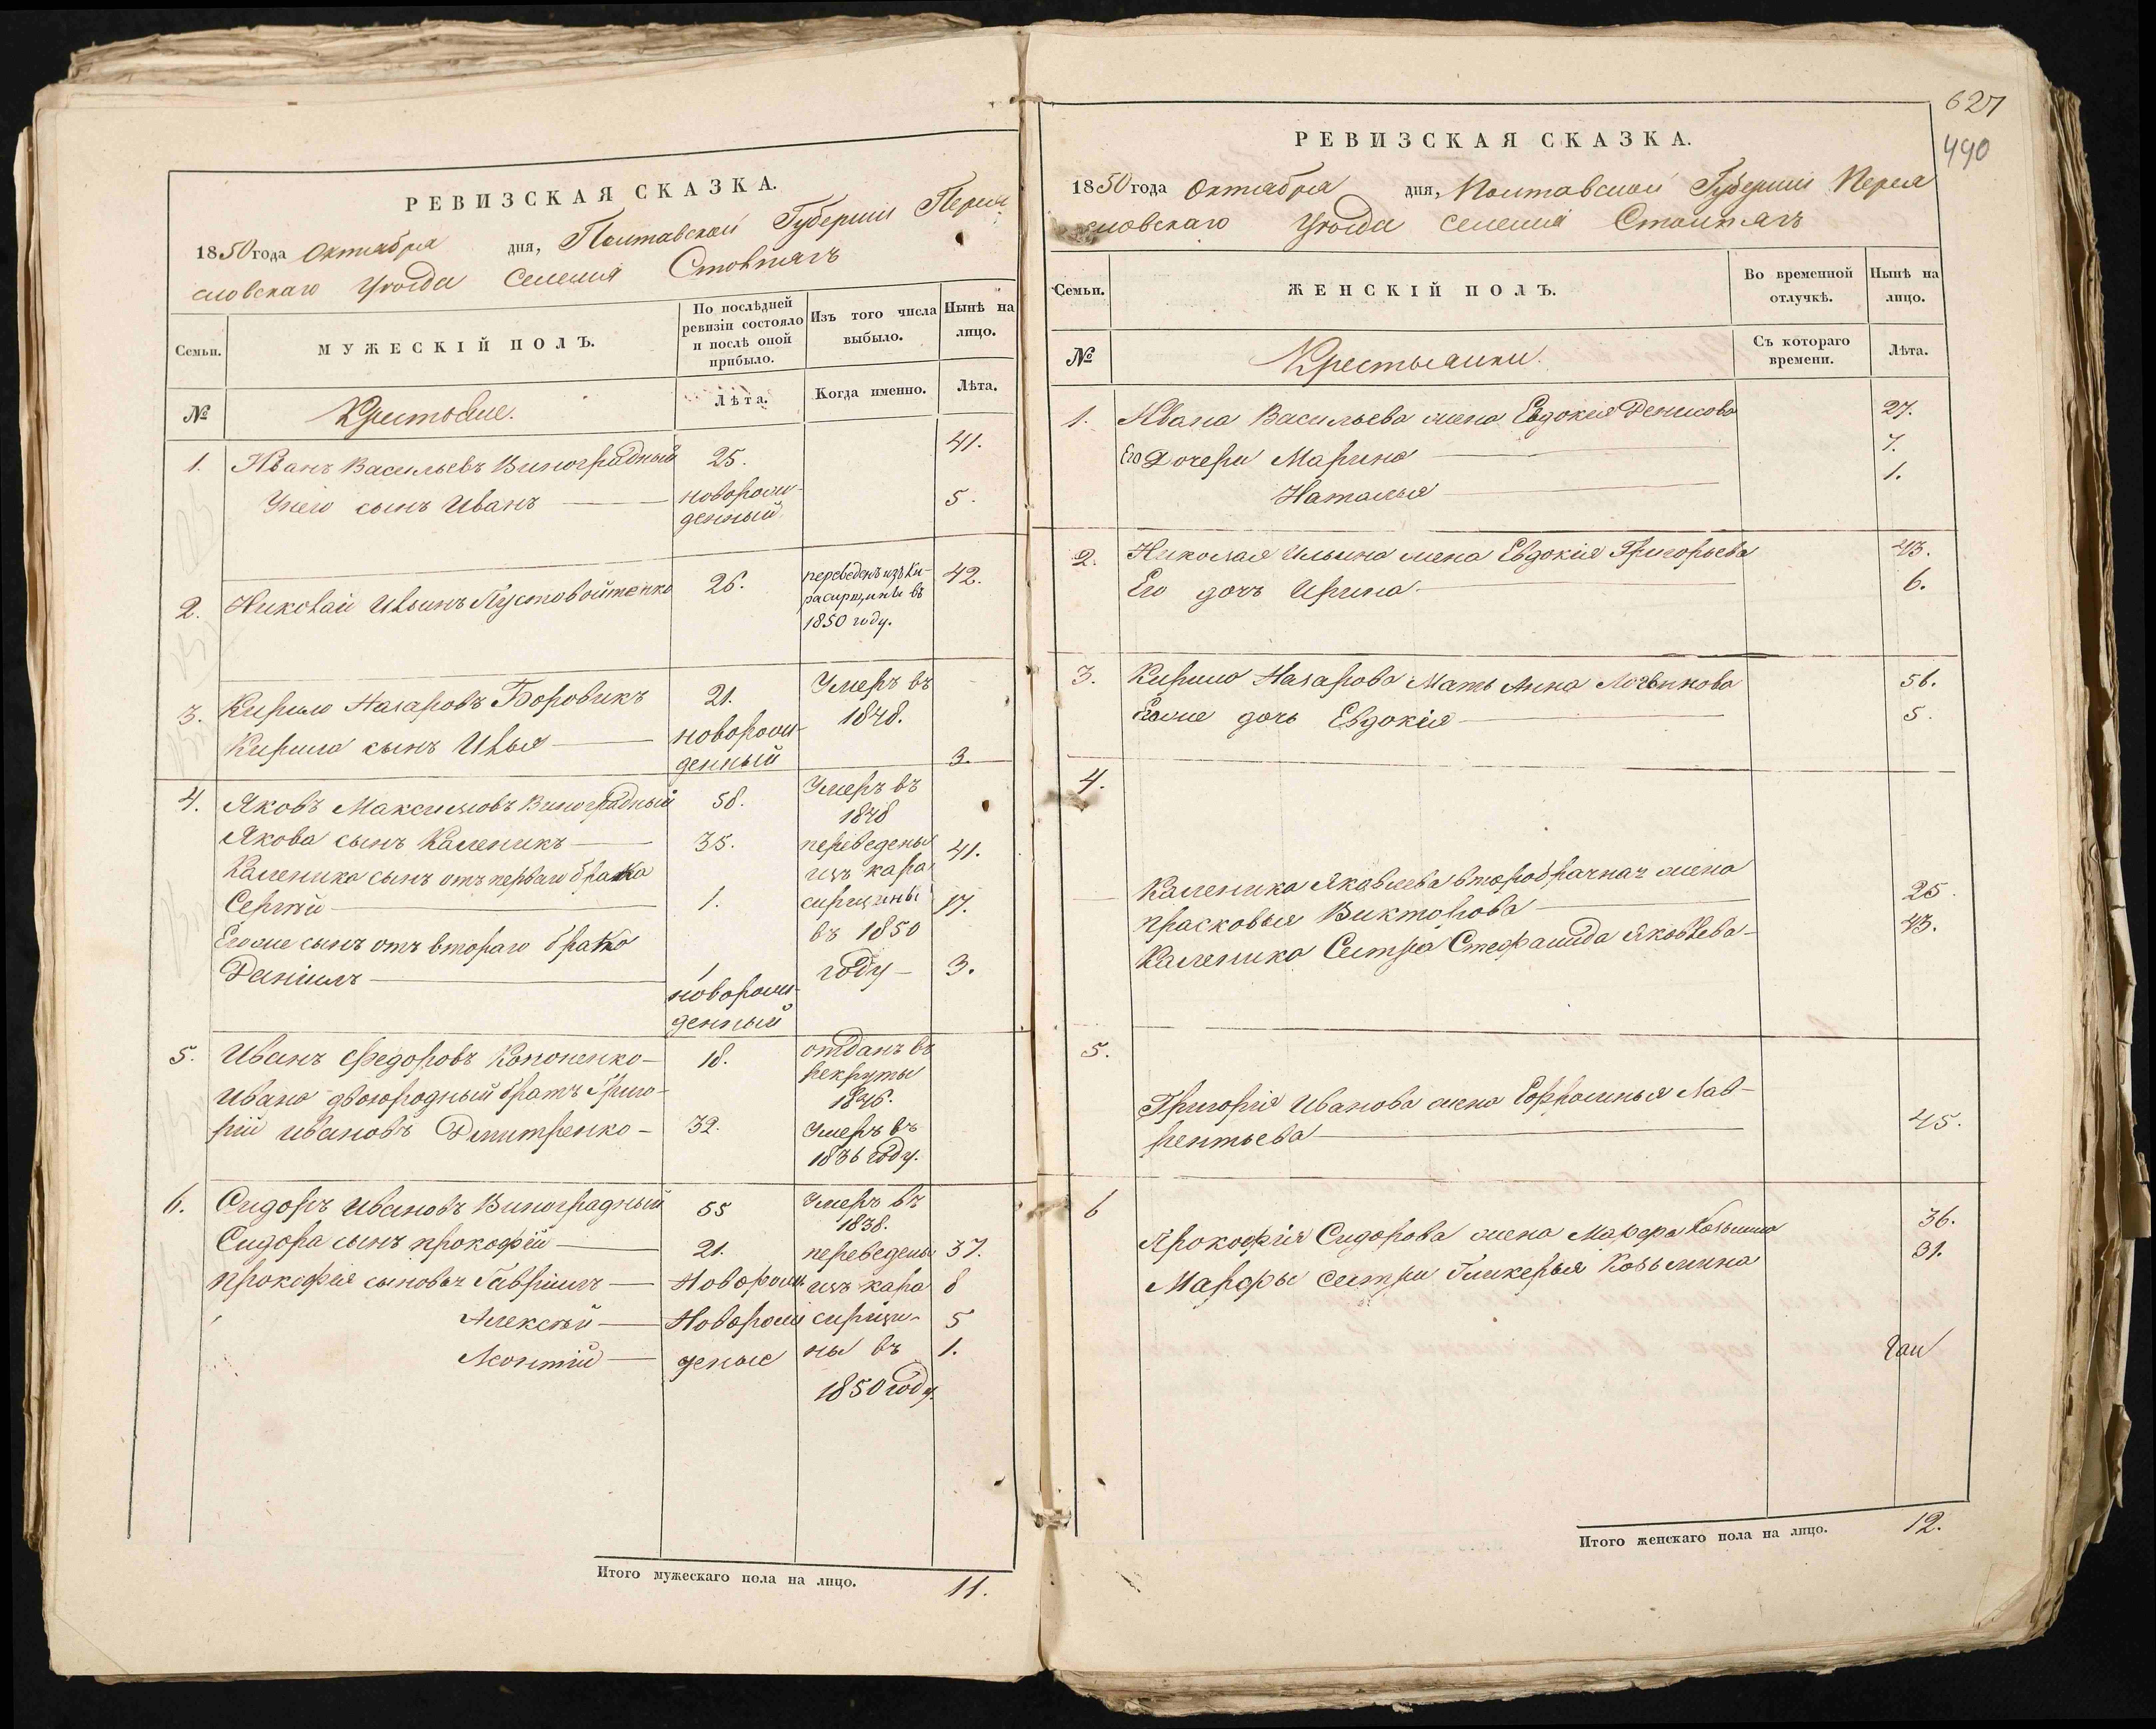 РЕВИЗСКАЯ СКАЗКА.
1850 года Октября дня, Полтавской Губерніи Перея
словскаго Уѣзда Селенія Стовпягъ
Семьи.
МУЖЕСКІЙ ПОЛЪ.
По послѣдней
ревизіи состояло
и послѣ оной
прибыло.
Изъ того числа
выбыло.
Нынѣ на
лицо.
№
Крестьяне.
Лѣта.
Когда именно.
Лѣта.
1. Иванъ Васильевъ Виноградный 25. 41.
У него сынъ Иванъ новорож-
денный 5.
2. Николай Ильинъ Пустовойтенко 26. переведенъ изъ Ка-
расирщины въ
1850 году. 42.
3. Кирило Назаровъ Боровикъ 21. Умеръ въ
1848.
Кирила сынъ Илья новорож-
денный 3.
4. Яковъ Максимовъ Виноградный 58. Умеръ въ
1848
Якова сынъ Каленикъ 35. переведены 41.
Каленика сынъ отъ перваго брака изъ кара
Сергѣй 1. сирщины 17.
Его же сынъ отъ втораго брака въ 1850
Даніилъ новорож-
денный году 3.
5. Иванъ Федоровъ Кононенко 18. отданъ въ
рекруты
1846.
Ивана двоюродный братъ Григо-
рій Ивановъ Дмитренко 32. Умеръ въ
1836 году.
6. Сидоръ Ивановъ Виноградный 55 Умеръ въ
1838.
Сидора сынъ Прокофій 21. переведены 37.
Прокофія сыновья Гавріилъ Новорож изъ кара 8
Алексѣй Новорож сирщи- 5
Леонтій деные ны въ 1.
1850 году.
Итого мужескаго пола на лицо. 11.
627
490
РЕВИЗСКАЯ СКАЗКА.
1850 года Октября дня, Полтавской Губерніи Перея
словскаго Уѣзда Селенія Столпягъ
Семьи.
ЖЕНСКІЙ ПОЛЪ.
Во временной
отлучкѣ.
Нынѣ на
лицо.
№
Крестьянки.
Съ котораго
времени.
Лѣта.
1. Ивана Васильева жена Евдокія Денисова 27.
Его Дочери Марина 7.
Наталья 1.
2. Николая Ильина жена Евдокія Григорьева 43.
Его дочь Ирина 6.
3. Кирила Назарова Мать Анна Логвинова 56.
Его же дочь Евдокія 5.
4.
Каленика Яковлева второбрачная жена
Прасковья Викторова 25
Каленика Сестра Стефанида Яковлева 43.
5.
Григорія Иванова жена Ефросинья Лав-
рентьева 45.
6
Прокофія Сидорова жена Марфа Козьмина 36.
Марфы сестра Гликерья Козьмина 31.
Итого женскаго пола на лицо. 12.